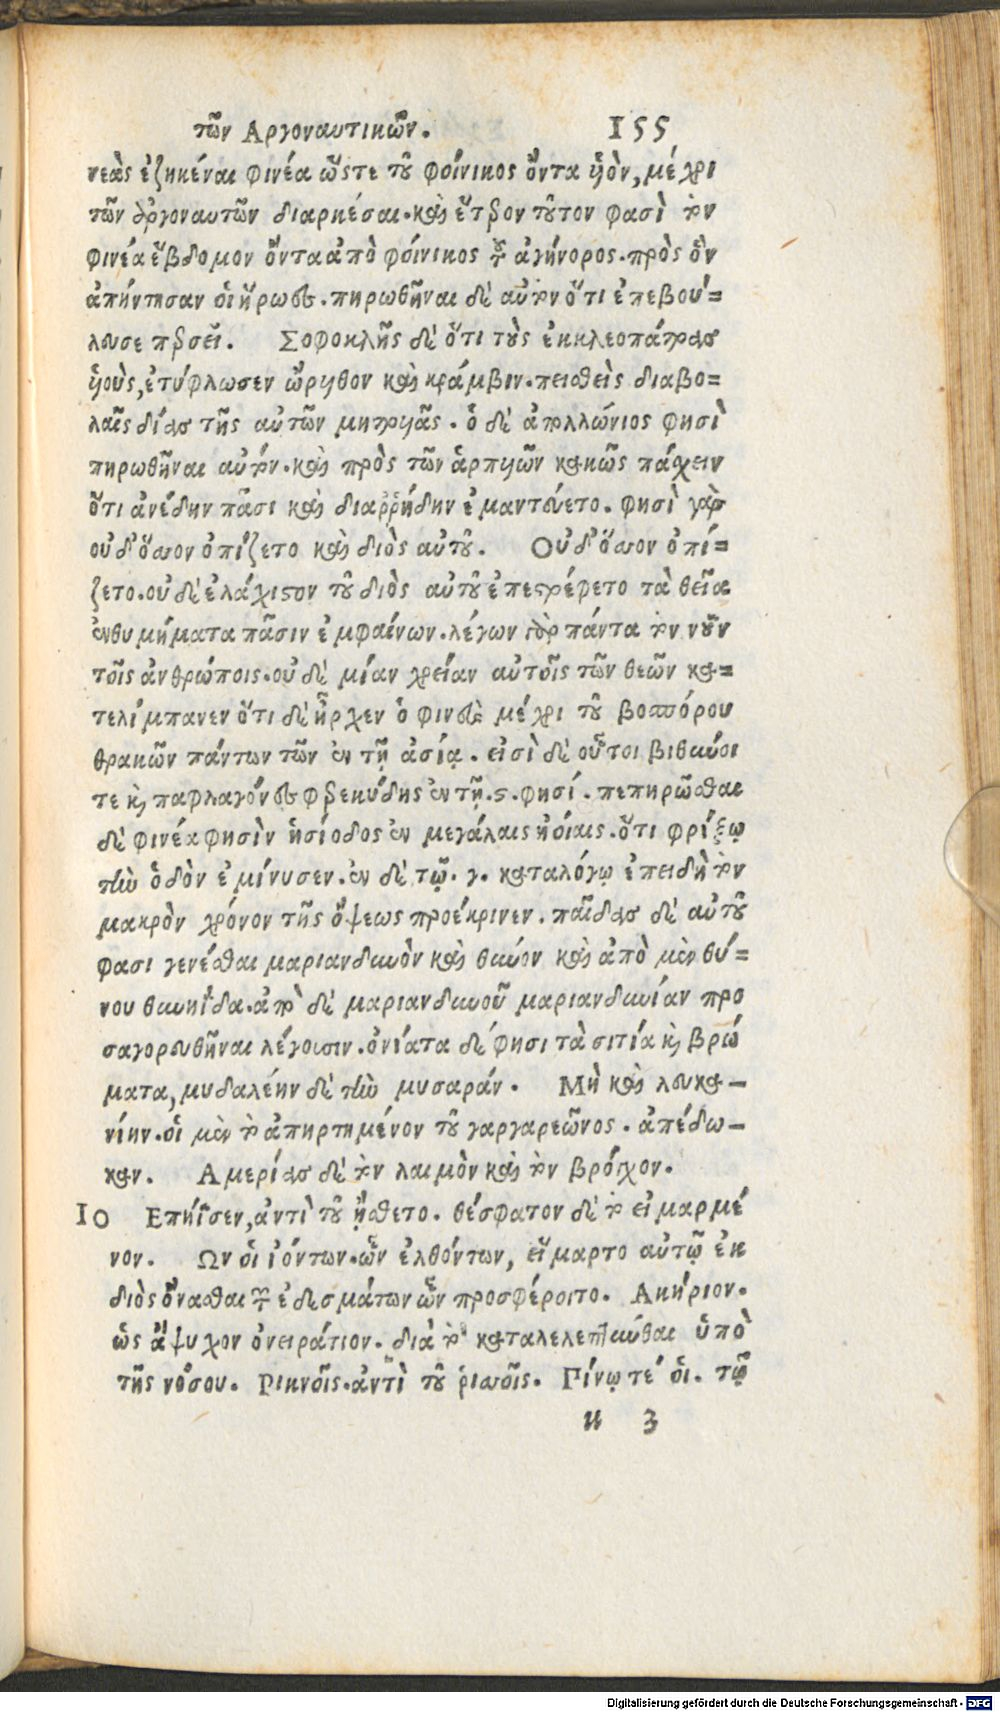 τῶν Αργοναυτικῶν. 155
νεὰς ἐζηκέναι φινέα ὥστε τοῦ φοίνικος ὄντα ἡὸν, μέχρι
τῶν ἀργοναυτῶν διαρκέσαι. καὶ ἕτερον τοῦτον φασὶ τὸν
φινέα ἕβδομον ὄντα ἀπὸ φοίνικος τοῦ ἀγήνορος. πρὸς ὃν
ἀπήντησαν οἱ ἥρωες. πηρωθῆναι δὲ αὐτὸν ὅτι ἐπεβού=
λευσε περσεῖ. Σοφοκλῆς δὲ ὅτι τοὺς ἐκ κλεοπάτρας
ἡοὺς, ἐτύφλωσεν ὤρυθον καὶ κράμβιν. πεισθεὶς διαβο=
λαῖς δίας τῆς αὐτῶν μητρυᾶς. ὁ δὲ ἀπολλώνιος φησὶ
πηρωθῆναι αὐτὸν. καὶ πρὸς τῶν ἁρπυιῶν κακῶς πάσχειν
ὅτι ἀνέδην πᾶσι καὶ διαῤῥήδην ἐμαντεύετο. φησὶ γὰρ
οὐδ' ὅσον ὀπίζετο καὶ διὸς αὐτοῦ. Οὐδ' ὅσον ὀπί=
ζετο. οὐδὲ ἐλάχιστον τοῦ διὸς αὐτοῦ ἐπεστρέφετο τὰ θεῖα
ἐνθυμήματα πᾶσιν ἐμφαίνων. λέγων γὰρ πάντα τὸν νοῦν
τοῖς ἀνθρώποις. οὐδὲ μίαν χρείαν αὐτοῖς τῶν θεῶν κα=
τελίμπανεν ὅτι δὲ ἦρχεν ὁ φινεὺς μέχρι τοῦ βοσπόρου
θρακῶν πάντων τῶν ἐν τῇ ἀσίᾳ. εἰσὶ δὲ οὗτοι βιθυνοί
τε καὶ παφλαγόνες φερεκύδης ἐν τῇ. ϛ. φησί. πεπηρῶσθαι
δὲ φινέα φησὶν ἡσίοδος ἐν μεγάλαις ἠοίαις. ὅτι φρίξῳ
τὴν ὁδὸν ἐμίνυσεν. ἐν δὲ τῷ. γ. καταλόγῳ ἐπειδὴ τὸν
μακρὸν χρόνον τῆς ὄψεως προέκρινεν. παῖδας δὲ αὐτοῦ
φασι γενέσθαι μαριανδυνὸν καὶ θυνόν καὶ ἀπὸ μὲν θύ=
νου θυνηΐδα. ἀπὸ δὲ μαριανδυνοῦ μαριανδυνίαν προ
σαγορευθῆναι λέγουσιν. ὀνίατα δέ φησι τὰ σιτία καὶ βρώ
ματα, μυδαλέην δὲ τὴν μυσαράν. Μὴ καὶ λευκα–
νίην. οἱ μὲν τὸ ἀπηρτημένον τοῦ γαργαρεῶνος. ἀπέδω–
καν. Αμερίας δὲ τὸν λαιμὸν καὶ τὸν βρόχον.
10 Επήϊσεν, ἀντὶ τοῦ ᾔσθετο. θέσφατον δὲ τὸ εἱμαρμέ
νον. Ων οἱ ἰόντων. ὧν ἐλθόντων, εἵμαρτο αὐτῷ ἐκ
διὸς ὄνασθαι τῶν ἐδεσμάτων ὧν προσφέροιτο. Ακήριον.
ὡς ἄψυχον ὀνειράτιον. διὰ τὸ καταλελεπτύνθαι ὑπὸ
τῆς νόσου. Ρικνοῖς. ἀντὶ τοῦ ῥισοῖς. Γίνῳ τέ οἱ. τῷ
u 3
Digitalisierung gefördert durch die Deutsche Forschungsgemeinschaft - DFG